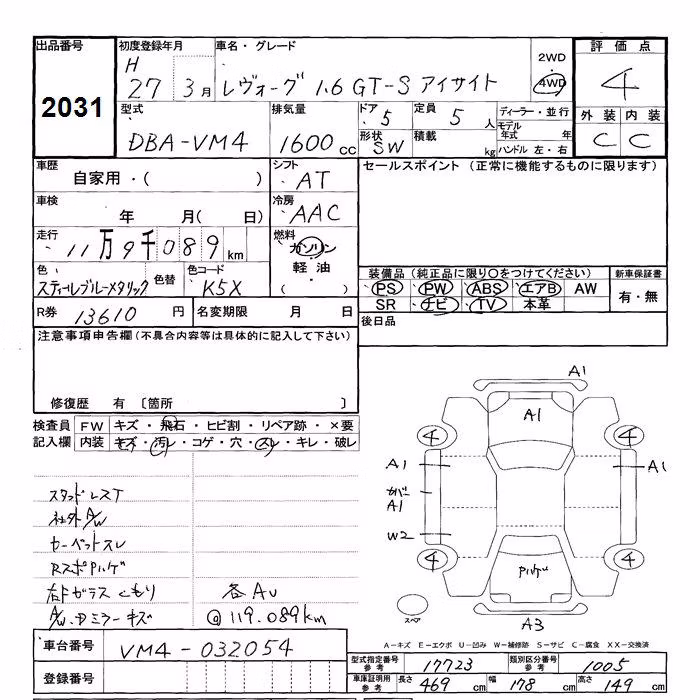 出品番号
2031
初度登録年月
H
27 3月
車名・グレード
レヴォーグ 1.6 GT-S アイサイト
2WD
・
4WD
評価点
4
外装 内装
C C
型式
DBA-VM4
排気量
1600 cc
ドア 5
形状 SW
定員 5 人
積載 kg
ディーラー・並行
モデル年式 年
ハンドル 左・右
車歴
自家用・( )
シフト
AT
セールスポイント (正常に機能するものに限ります)
車検
年 月( 日)
冷房
AAC
走行
11万9千089 km
燃料
ガソリン
軽油
( )
色
スティールブルーメタリック
色替
色コード
K5X
装備品(純正品に限り○をつけてください)
PS PW ABS エアB AW
SR ナビ TV 本革
新車保証書
有・無
R券 13610 円
名変期限 月 日
後日品
注意事項申告欄(不具合内容等は具体的に記入して下さい)
修復歴 有 〔箇所 〕
検査員記入欄
FW キズ・飛石・ヒビ割・リペア跡・×要
内装 キズ・汚レ・コゲ・穴・スレ・キレ・破レ
スタッドレスT
社外A/W
カーペットスレ
右Fガラスくもり
A/W・Dミラーキズ
各AU
@119.089km
A1
A1
4 4
A1 A1
カバー
A1
W2
4 4
スペア
A3
A-キズ E-エクボ U-凹み W-補修跡 S-サビ C-腐食 XX-交換済
車台番号
VM4-032054
登録番号
型式指定番号参考 17723
類別区分番号参考 1005
車庫証明用参考 長さ 469 cm 幅 178 cm 高さ 149 cm